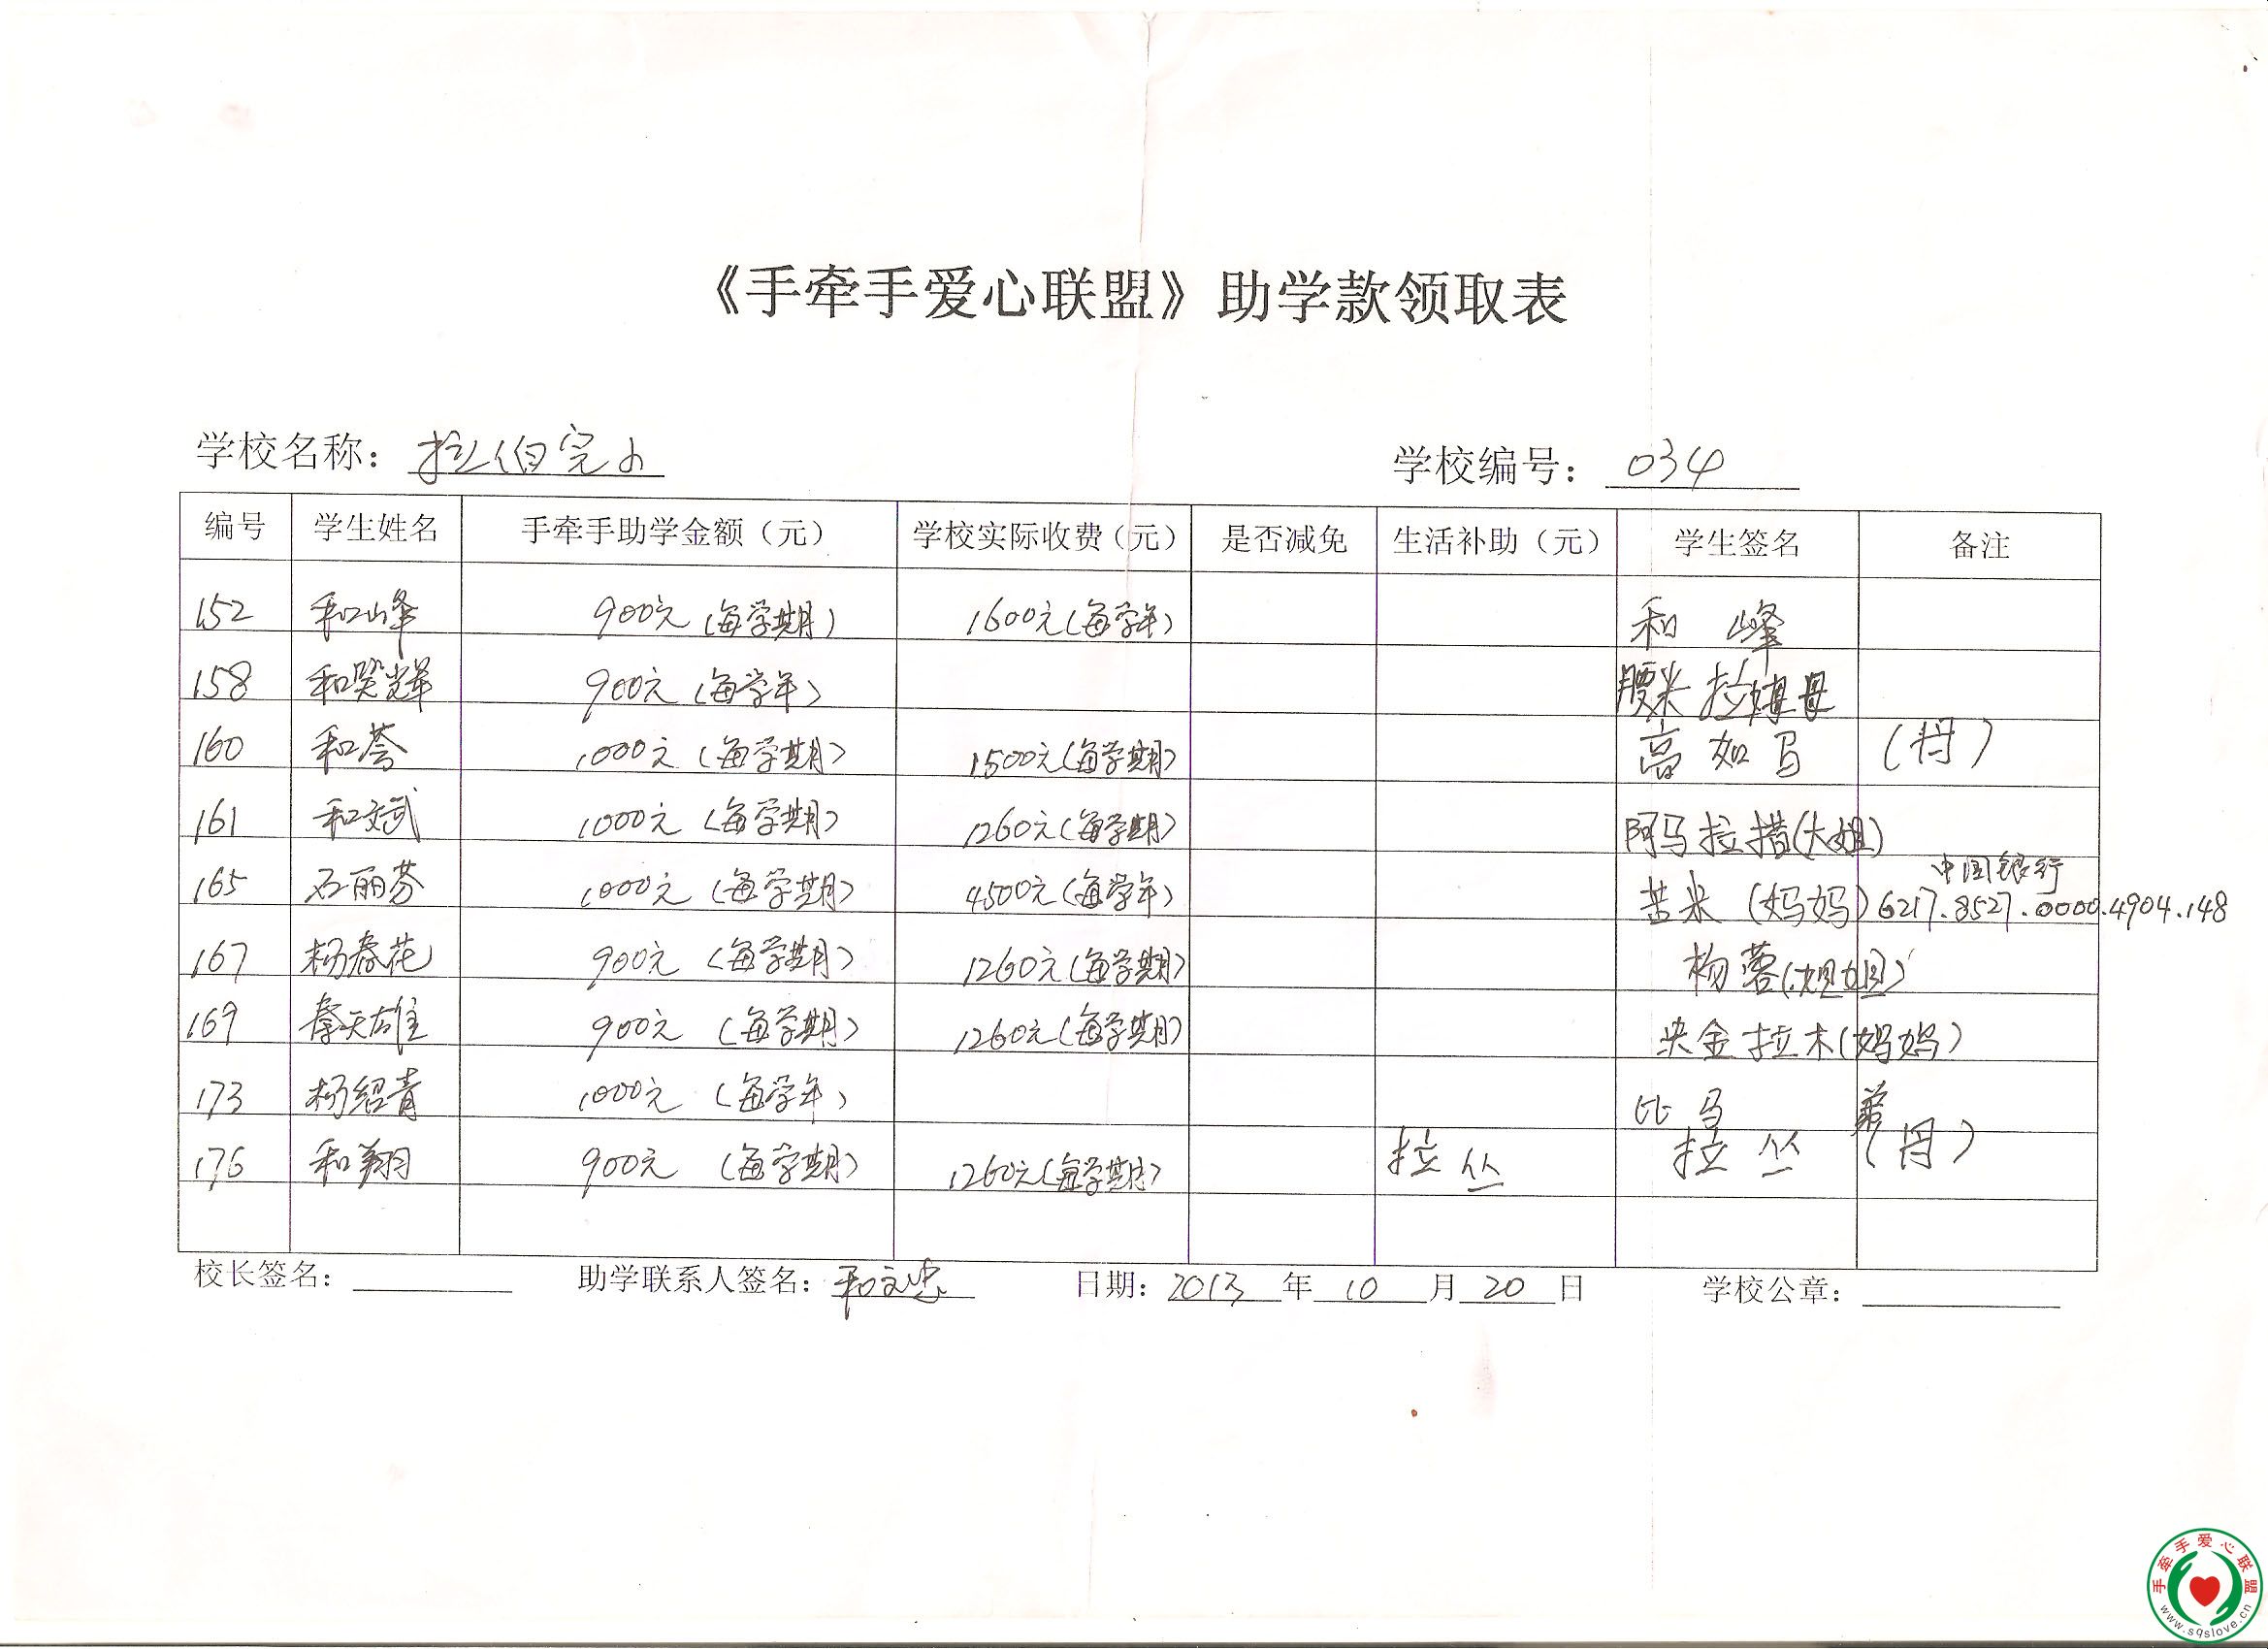 《手牵手爱心联盟》助学款领取表
学校名称：拉伯完小 学校编号：034
编号 学生姓名 手牵手助学金额（元） 学校实际收费（元） 是否减免 生活补助（元） 学生签名 备注
152 和山峰 900元（每学期） 1600元（每学年） 和峰
158 900元（每学年） 腰米拉姆
160 和荟 1000元（每学期） 1500元（每学期） 高如马
161 和文武 1000元（每学期） 1260元（每学期） 阿马拉措（大姐）
中国银行
165 石丽芬 1000元（每学期） 4500元（每学年） 苦米（妈妈） 6217.8527.0000.4904.148
167 杨春花 900元（每学期） 1260元（每学期） 杨蓉（姐姐）
169 秦天雄 900元（每学期） 1260元（每学期） 央金拉木（妈妈）
173 杨绍青 1000元（每学年） 比马
176 和翔 900元（每学期） 1260元（每学期） 拉丛 拉丛
校长签名： 助学联系人签名：和文忠 日期：2013年10月20日 学校公章：
手牵手爱心联盟
www.sqslove.cn